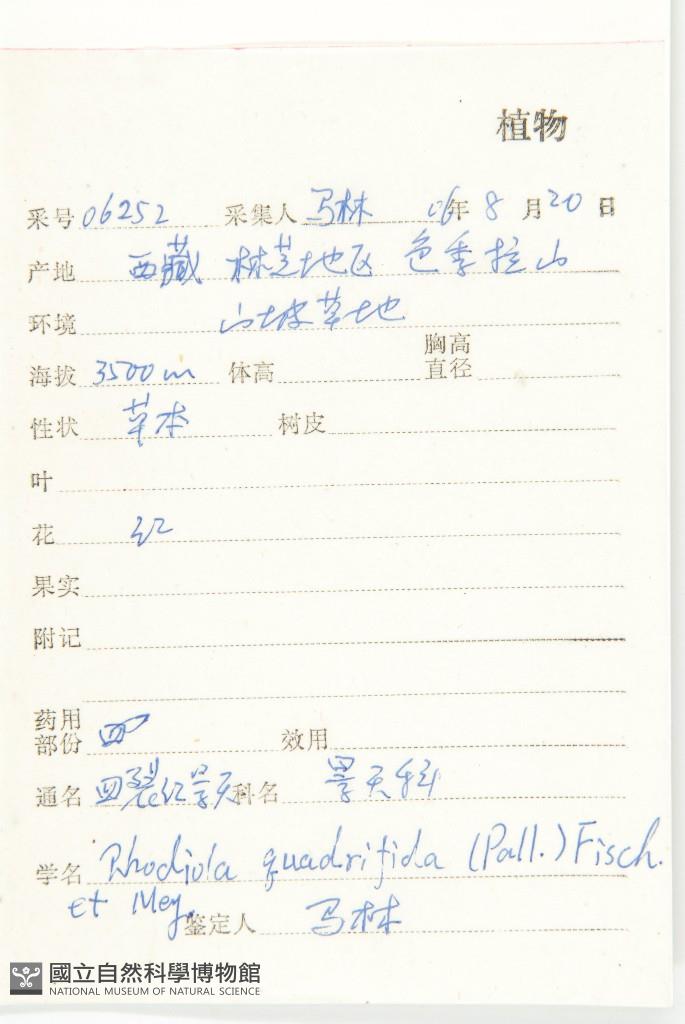 植物
采号 06252 采集人 马林 06年 8 月 20 日
产地 西藏 林芝地区 色季拉山
环境 山坡草地
海拔 3500m 体高 胸高直径
性状 草本 树皮
叶
花 红
果实
附记
药用部份 效用
通名 四裂红景天 科名 景天科
学名 Rhodiola quadrifida (Pall.) Fisch.
et Mey.
鉴定人 马林
國立自然科學博物館
NATIONAL MUSEUM OF NATURAL SCIENCE